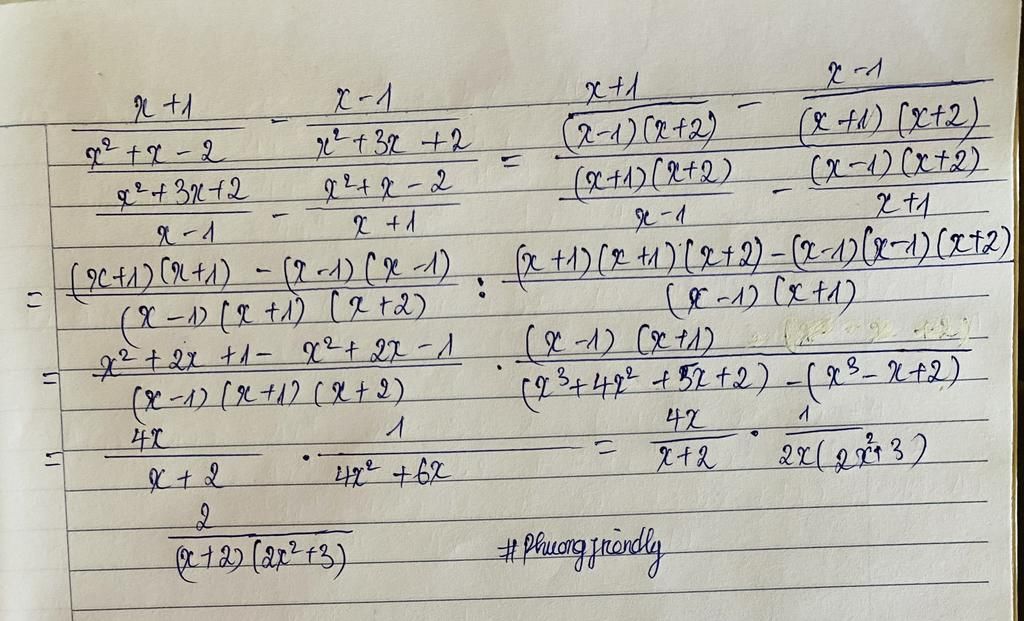 x+1 / (x² + x - 2) - x-1 / (x² + 3x + 2) = x+1 / ((x-1)(x+2)) - x-1 / ((x+1)(x+2))
(x² + 3x + 2) / (x-1) - (x² + x - 2) / (x+1) (x+1)(x+2) / (x-1) - (x-1)(x+2) / (x+1)
= ((x+1)(x+1) - (x-1)(x-1)) / ((x-1)(x+1)(x+2)) : ((x+1)(x+1)(x+2) - (x-1)(x-1)(x+2)) / ((x-1)(x+1))
= (x² + 2x + 1 - x² + 2x - 1) / ((x-1)(x+1)(x+2)) . ((x-1)(x+1)) / ((x³ + 4x² + 5x + 2) - (x³ - x + 2))
= 4x / (x+2) . 1 / (4x² + 6x) = 4x / (x+2) . 1 / (2x(2x² + 3))
2 / ((x+2)(2x² + 3)) #Phuongfriendly